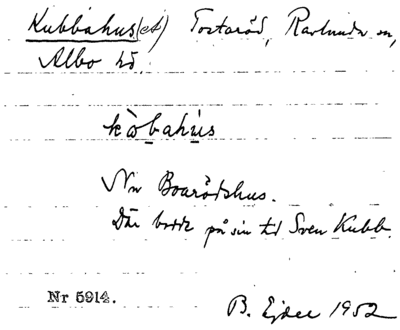 Kubbahus(et) Tostaröd, Ravlunda sn,
Albo hd.
kòbahús
Nu Boarödshus.
Där bodde på sin tid Sven Kubb.
Nr 5914.
B. Ejder 1952